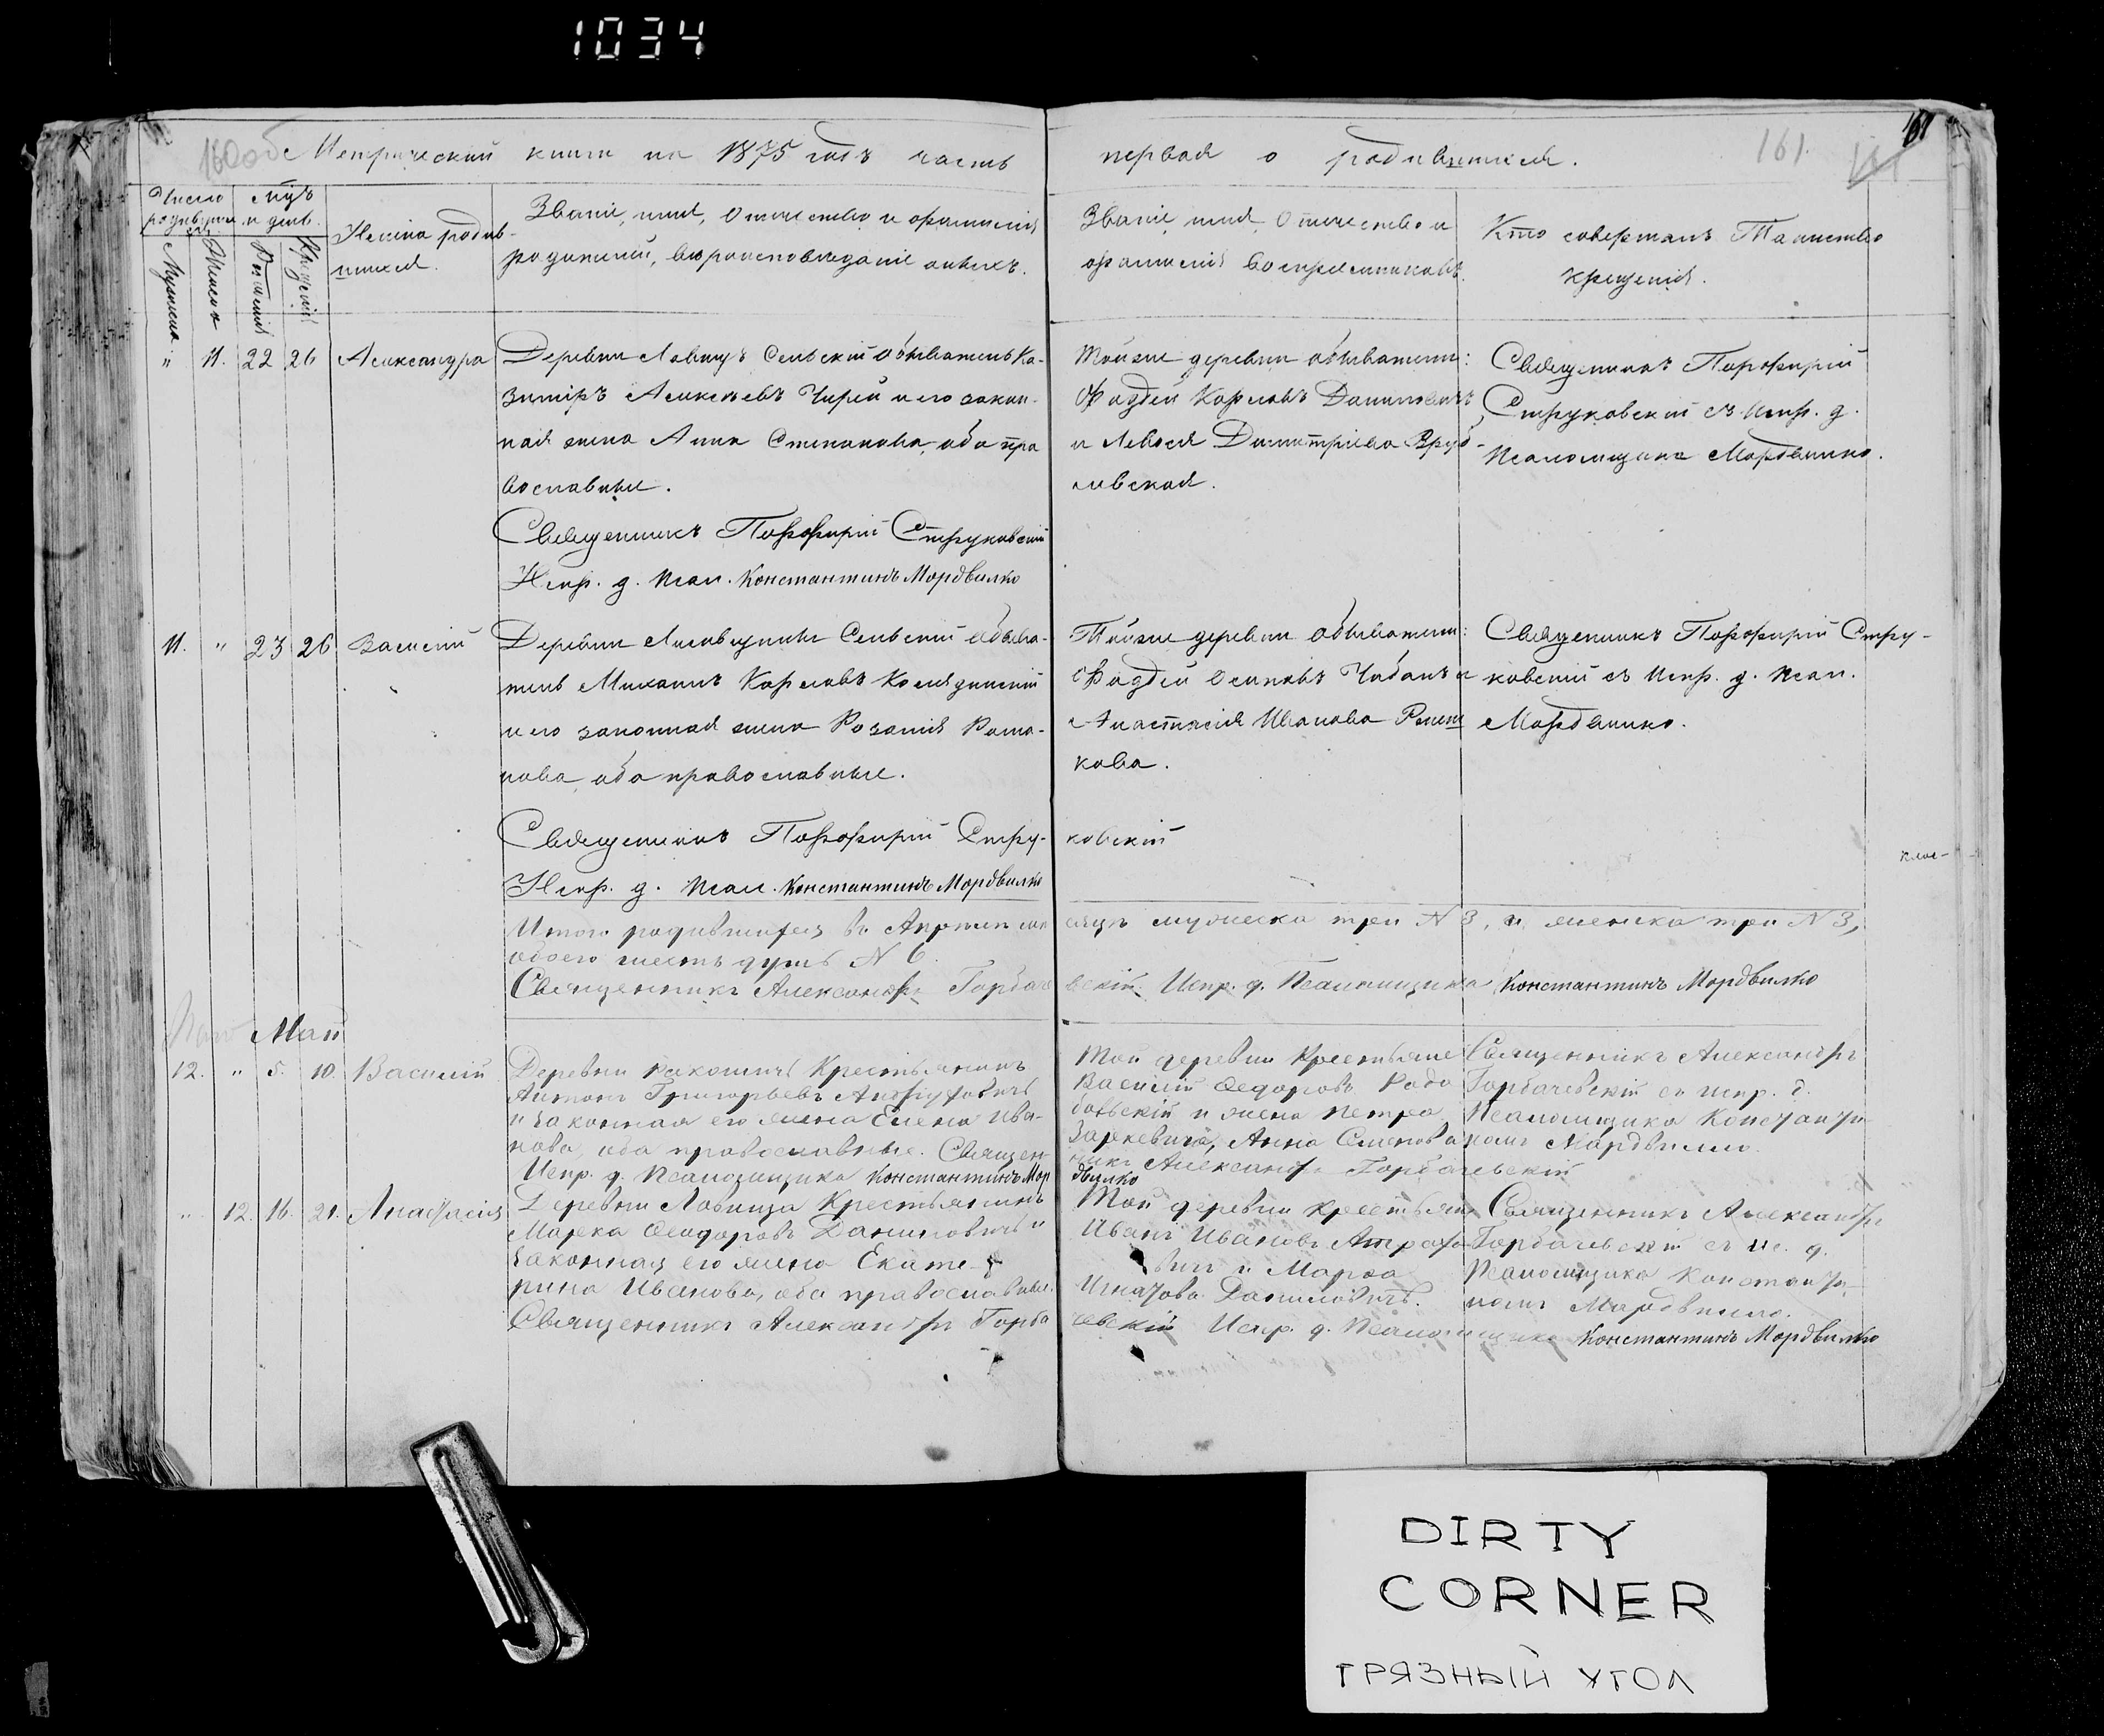 1034
160 об Метрической книги на 1875 годъ часть
первая о родившихся.
161.
161
Число родившихся
Мѣсяцъ и день
Мужеска
Женска
Рожденія
Крещенія
Имена родив-
шихся.
Званіе, имя, отчество и фамилія
родителей, и вѣроисповѣданіе онихъ.
Званіе, имя, отчество и
фамилія воспріемниковъ.
Кто совершалъ Таинство
крещенія.
" 11. 22 26 Александра
Деревни Лавицъ Сельскій обыватель Ка-
зиміръ Алексѣевъ Чирей и его закон-
ная жена Анна Степанова, оба пра
вославные.
Священникъ Порфирій Струковскій
Испр. д. псал. Константинъ Мордвилко
тойже деревни обыватели:
Фаддей Карловъ Даниловичъ
и Димитріева Вруб-
левская.
Священникъ Порфирій
Струковскій съ испр. д.
Псаломщика Мордвилко.
11. " 23 26 Василій
Деревни Сельскій обыва-
тель Михаилъ Карловъ Колядинскій
и его законная жена Розалія Рома-
нова, оба православные.
Священникъ Порфирій Стру-
ковскій
Испр. д. псал. Константинъ Мордвилко
Тойже деревни обыватели:
Фаддей Осиповъ Чабанъ и
Анастасія Иванова
кова.
Священникъ Порфирій Стру-
ковскій съ испр. д. псал.
Мордвилко.
клос-
Итого родившихся въ Апрѣлѣ мѣ
сяцѣ мужеска три N 3, и женска три N 3,
обоего шесть душъ N 6.
Священникъ Александръ Горбаче
вскій. Испр. д. Псаломщика Константинъ Мордвилко
Май
12. " 5. 10. Василій
Деревни Крестьянинъ
Антонъ Григорьевъ
и законная его жена Елена Ива-
нова, оба православные. Священ
никъ Александръ Горбачевскій
Испр. д. Псаломщика Константинъ Мор
двилко
Той деревни Крестьяне
Василій Федоровъ Радо
и жена Петра
Заркевича, Анна Семенова
Священникъ Александръ
Горбачевскій съ испр. д.
Псаломщика Константи
номъ Мордвилко.
" 12. 16. 21. Анастасія
Деревни Лавица Крестьянинъ
Марка Феодоровъ Даниловичъ и
законная его жена Екате-
рина Иванова, оба православные.
Священникъ Александръ Горба
чевскій Испр. д. Псаломщика Константинъ Мордвилко
Той деревни крестьяне
Иванъ Ивановъ
вичъ и Марѳа
Игнатова Даниловичъ.
Священникъ Александръ
Горбачевскій съ ис. д.
Псаломщика Константи
номъ Мордвилко.
DIRTY
CORNER
ГРЯЗНЫЙ УГОЛ